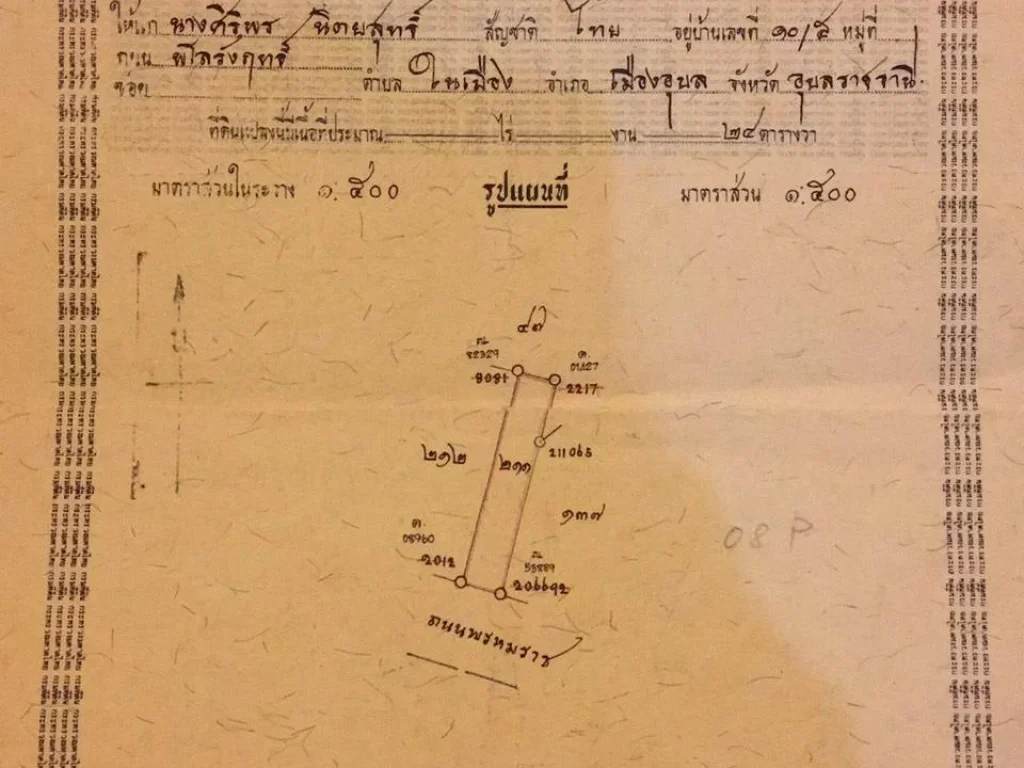 ให้แก่ นางศิริพร นิตยสุทธิ์ สัญชาติ ไทย อยู่บ้านเลขที่ ๑๐/๕ หมู่ที่
ถนน พิโลรังฤทธิ์
ซอย ตำบล ในเมือง อำเภอ เมืองอุบล จังหวัด อุบลราชธานี
ที่ดินแปลงนี้มีเนื้อที่ประมาณ ไร่ งาน ๒๔ ตารางวา
มาตราส่วนในระวาง ๑:๕๐๐ รูปแผนที่ มาตราส่วน ๑:๕๐๐
๔๗
82329
ต.
01427
8081
2217
211065
๒๑๒
๒๑๑
๑๓๗
08 P
ต.
08960
2012
53889
206692
ถนนพรหมราช